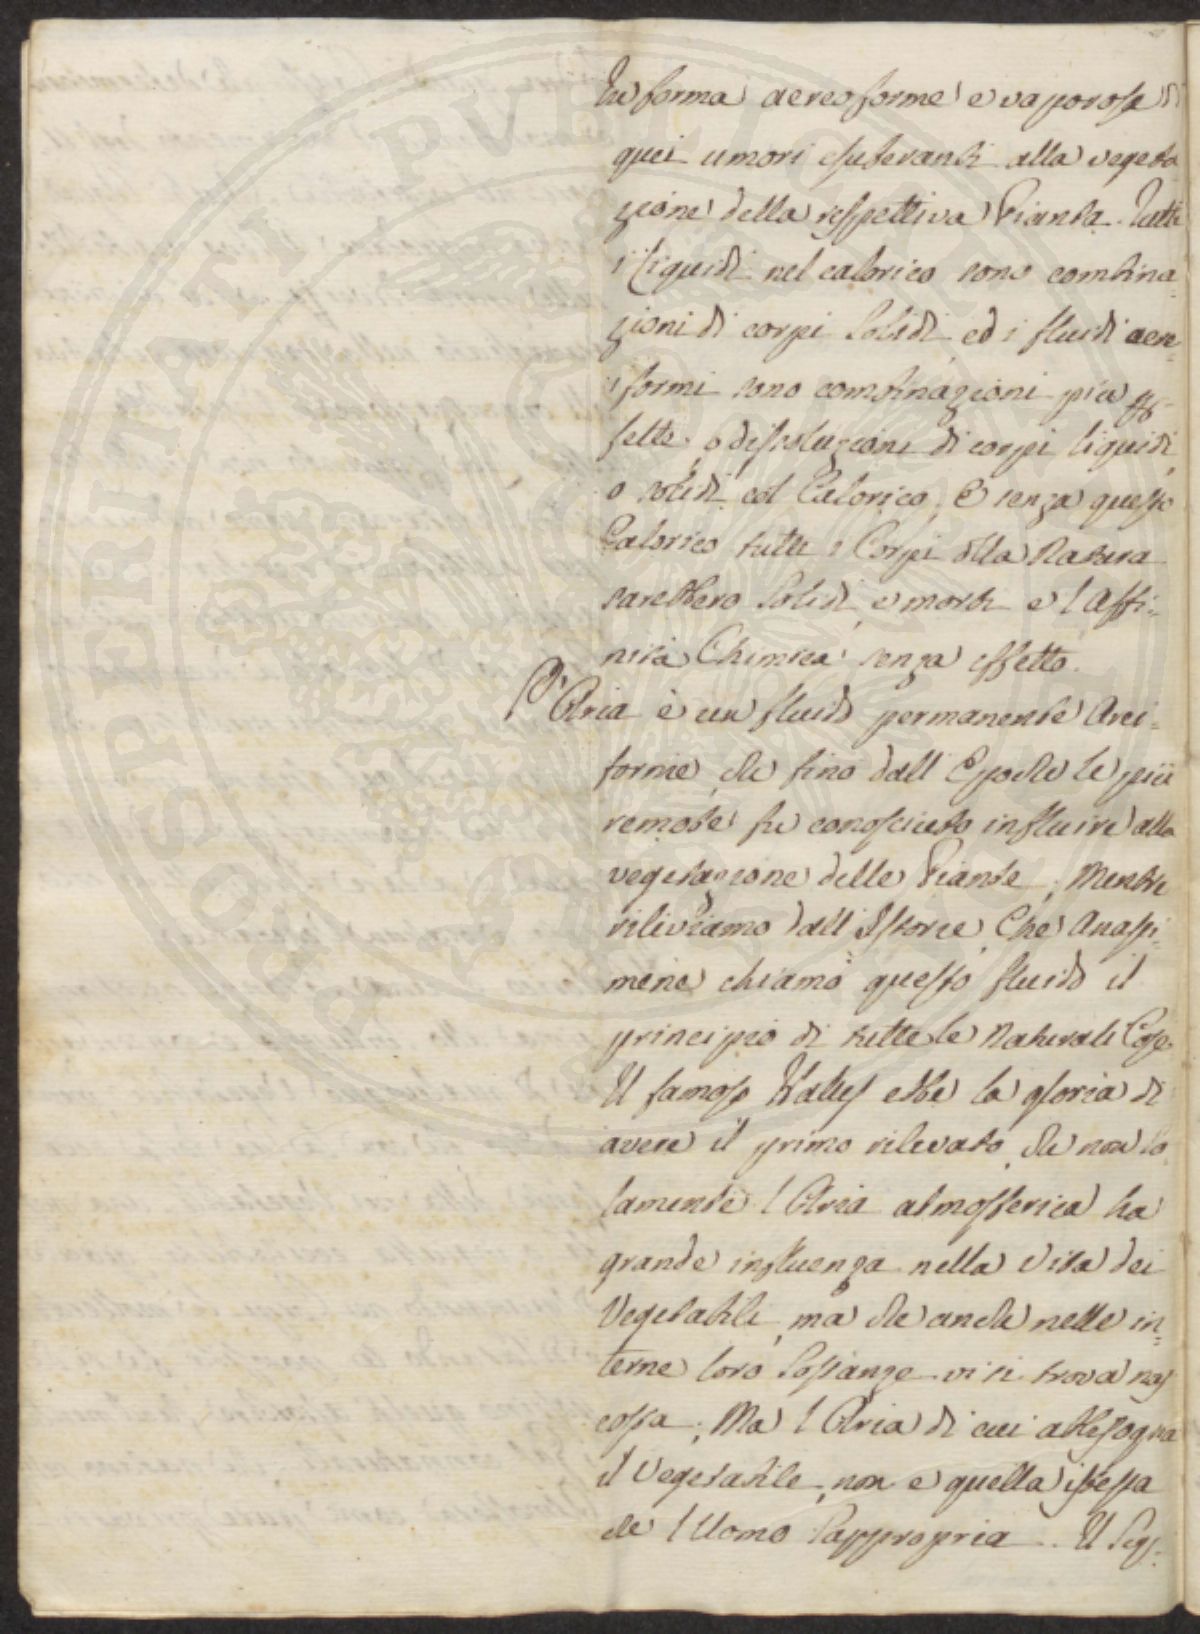 In forma aereoforme e vaporosa di
quei umori esuberanti alla vegeta
zione della respettiva Pianta. Tutti
i liquidi nel calorico sono combina-
zioni di corpi solidi, ed i fluidi aere
iformi sono combinazioni più per-
fette, o dissoluzioni di corpi liquidi,
o solidi col Calorico, E senza questo
Calorico tutti i Corpi della Natura
sarebbero solidi, e morti e l'Affi-
nità Chimica senza effetto.
L'Aria è un fluido permanente Arei-
forme, che fino dall'Epoche le più
remote fu conosciuto influire alla
vegetazione delle Piante, Mentre
rileviamo dall'Istorie, Che Anassi-
mene chiamò questo fluido il
principio di tutte le Naturali Cose
Il famoso ebbe la gloria di
avere il primo rilevato, che non so
lamente l'Aria atmosferica ha
grande influenza nella Vita dei
Vegetabili, ma che anche nelle in-
terne loro Sostanze vi si trova nas
cosa, Ma l'Aria di cui abbisogna
il Vegetabile, non è quella istessa
che l'Uomo s'appropria. Il Sig-
PROSPERITATI PVBLICAE